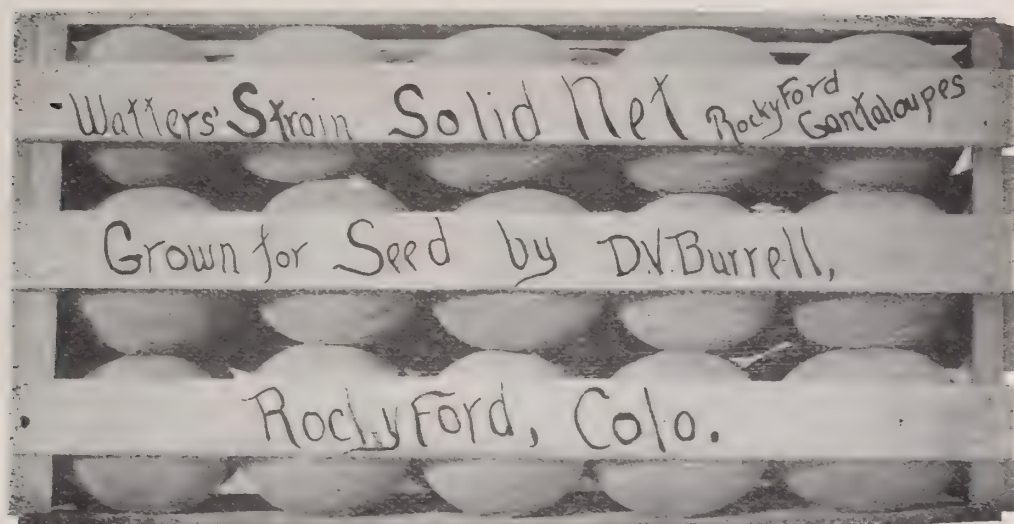 Watters' Strain Solid Net Rocky Ford Cantaloupes
Grown for Seed by D.V. Burrell,
Rocky Ford, Colo.